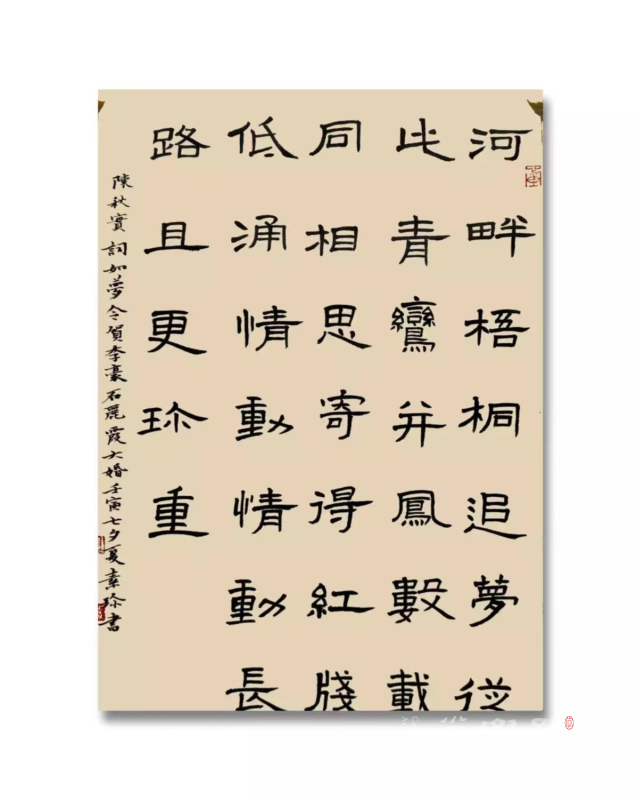 河畔梧桐追夢從
此青鸞并鳳數載
同相思寄得紅牋
低涌情動情動長
路且更珎重
陳秋實詞如夢令賀李豪石麗霞大婚壬寅七夕夏素珎書